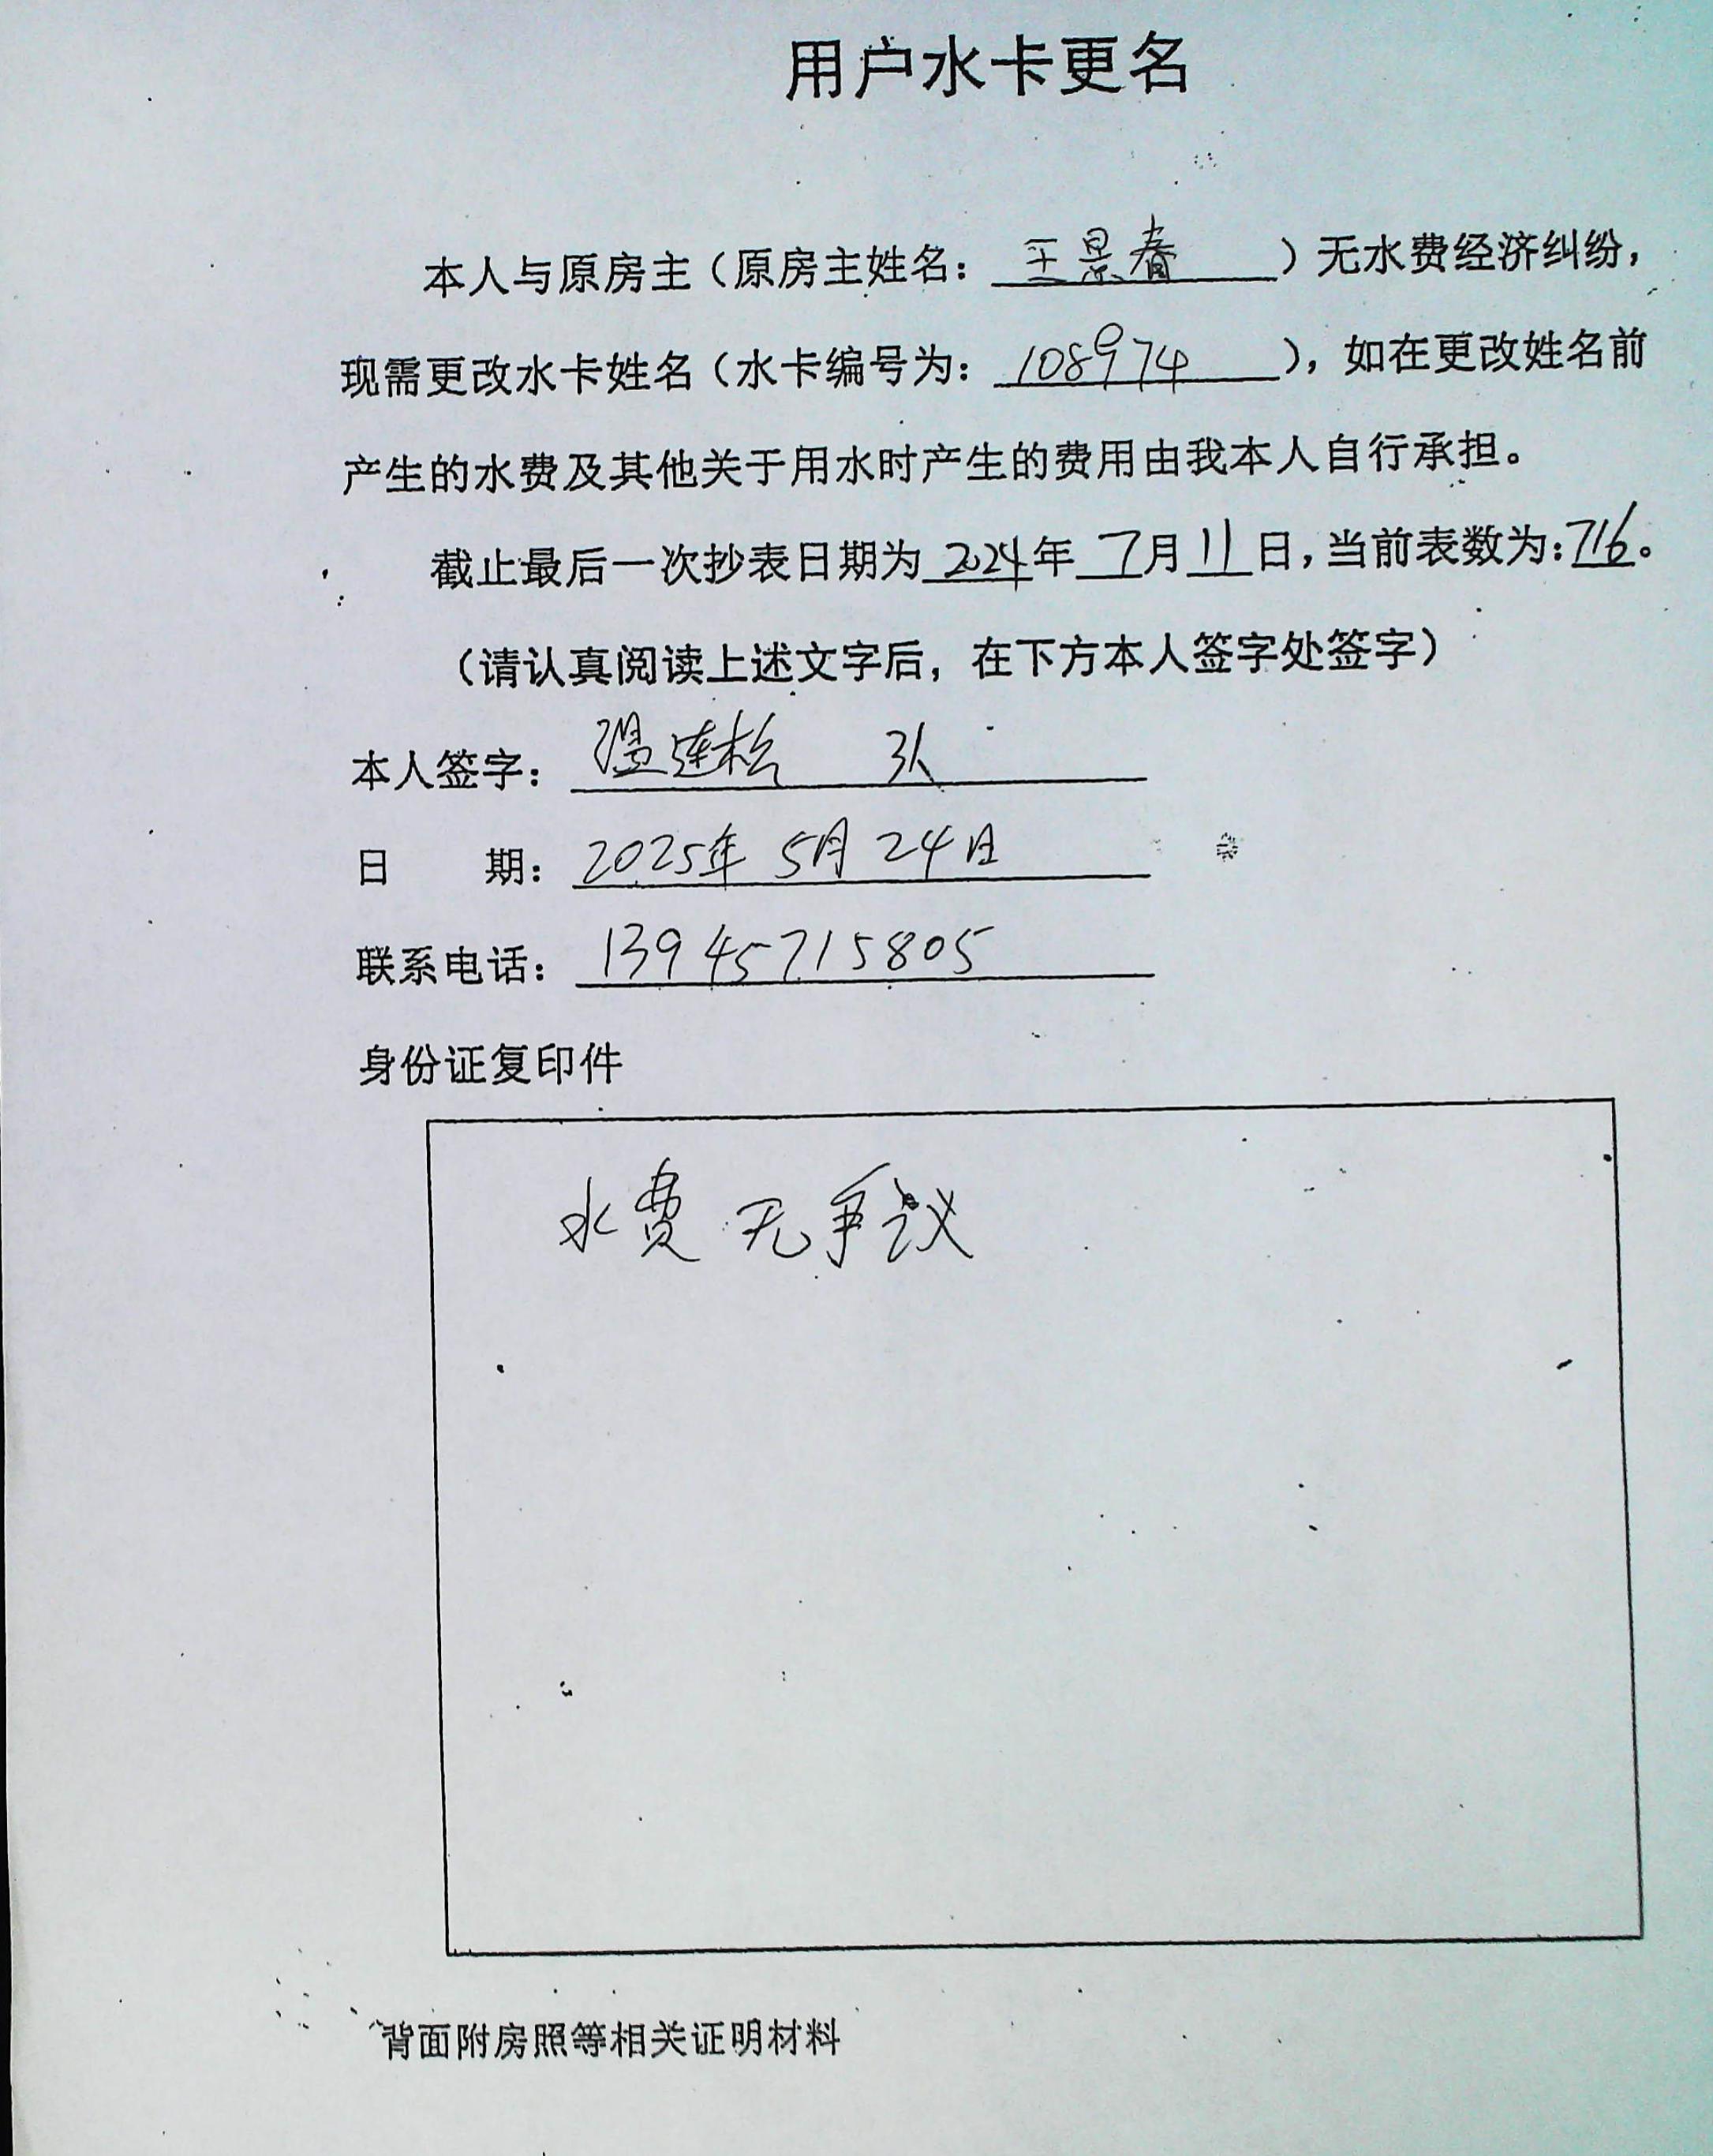 用户水卡更名
本人与原房主（原房主姓名：王景春）无水费经济纠纷，
现需更改水卡姓名（水卡编号为：108974），如在更改姓名前
产生的水费及其他关于用水时产生的费用由我本人自行承担。
截止最后一次抄表日期为2024年7月11日，当前表数为：716。
（请认真阅读上述文字后，在下方本人签字处签字）
本人签字：温连松
日 期：2025年5月24日
联系电话：13945715805
身份证复印件
水费无争议
背面附房照等相关证明材料